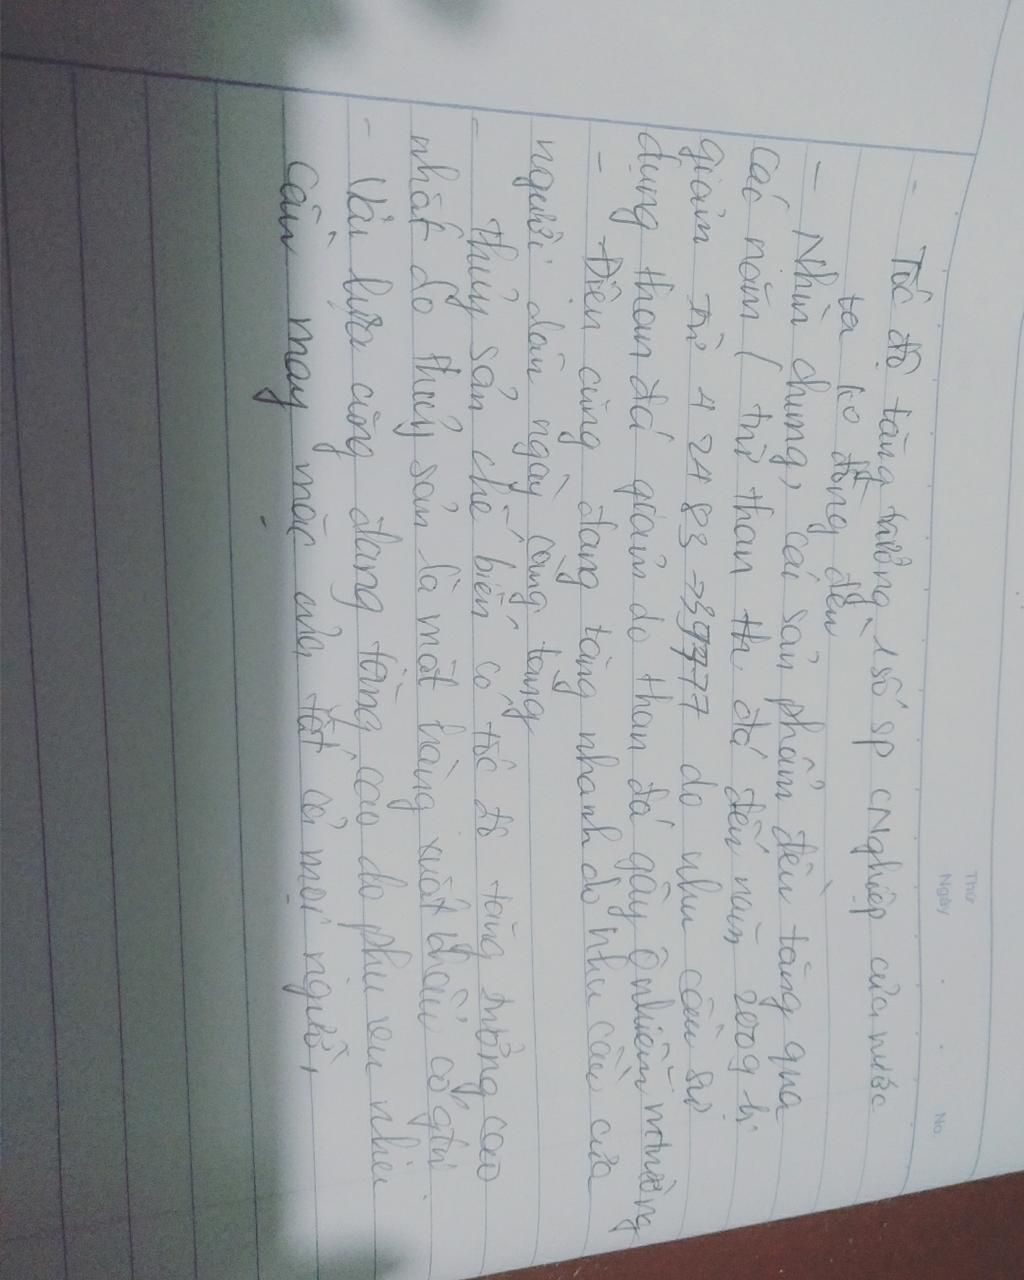 Thứ
Ngày
No.
- Tốc độ tăng trưởng 1 số sp cNghiệp của nước
ta ko đồng đều
- Nhìn chung, các sản phẩm đều tăng qua
các năm ( trừ than đá đến năm 2009 bị
giảm từ 42483 → 39777 do nhu cầu sử
dụng than đá giảm do than đá gây ô nhiễm mtrường
- Điện cũng đang tăng nhanh do nhu cầu của
người dân ngày càng tăng
- Thủy sản chế biến có tốc độ tăng trưởng cao
nhất do thủy sản là mặt hàng xuất khẩu có gtrị
- Vải lụa cũng đang tăng cao do nhu
cần may mặc của tất cả mọi người,